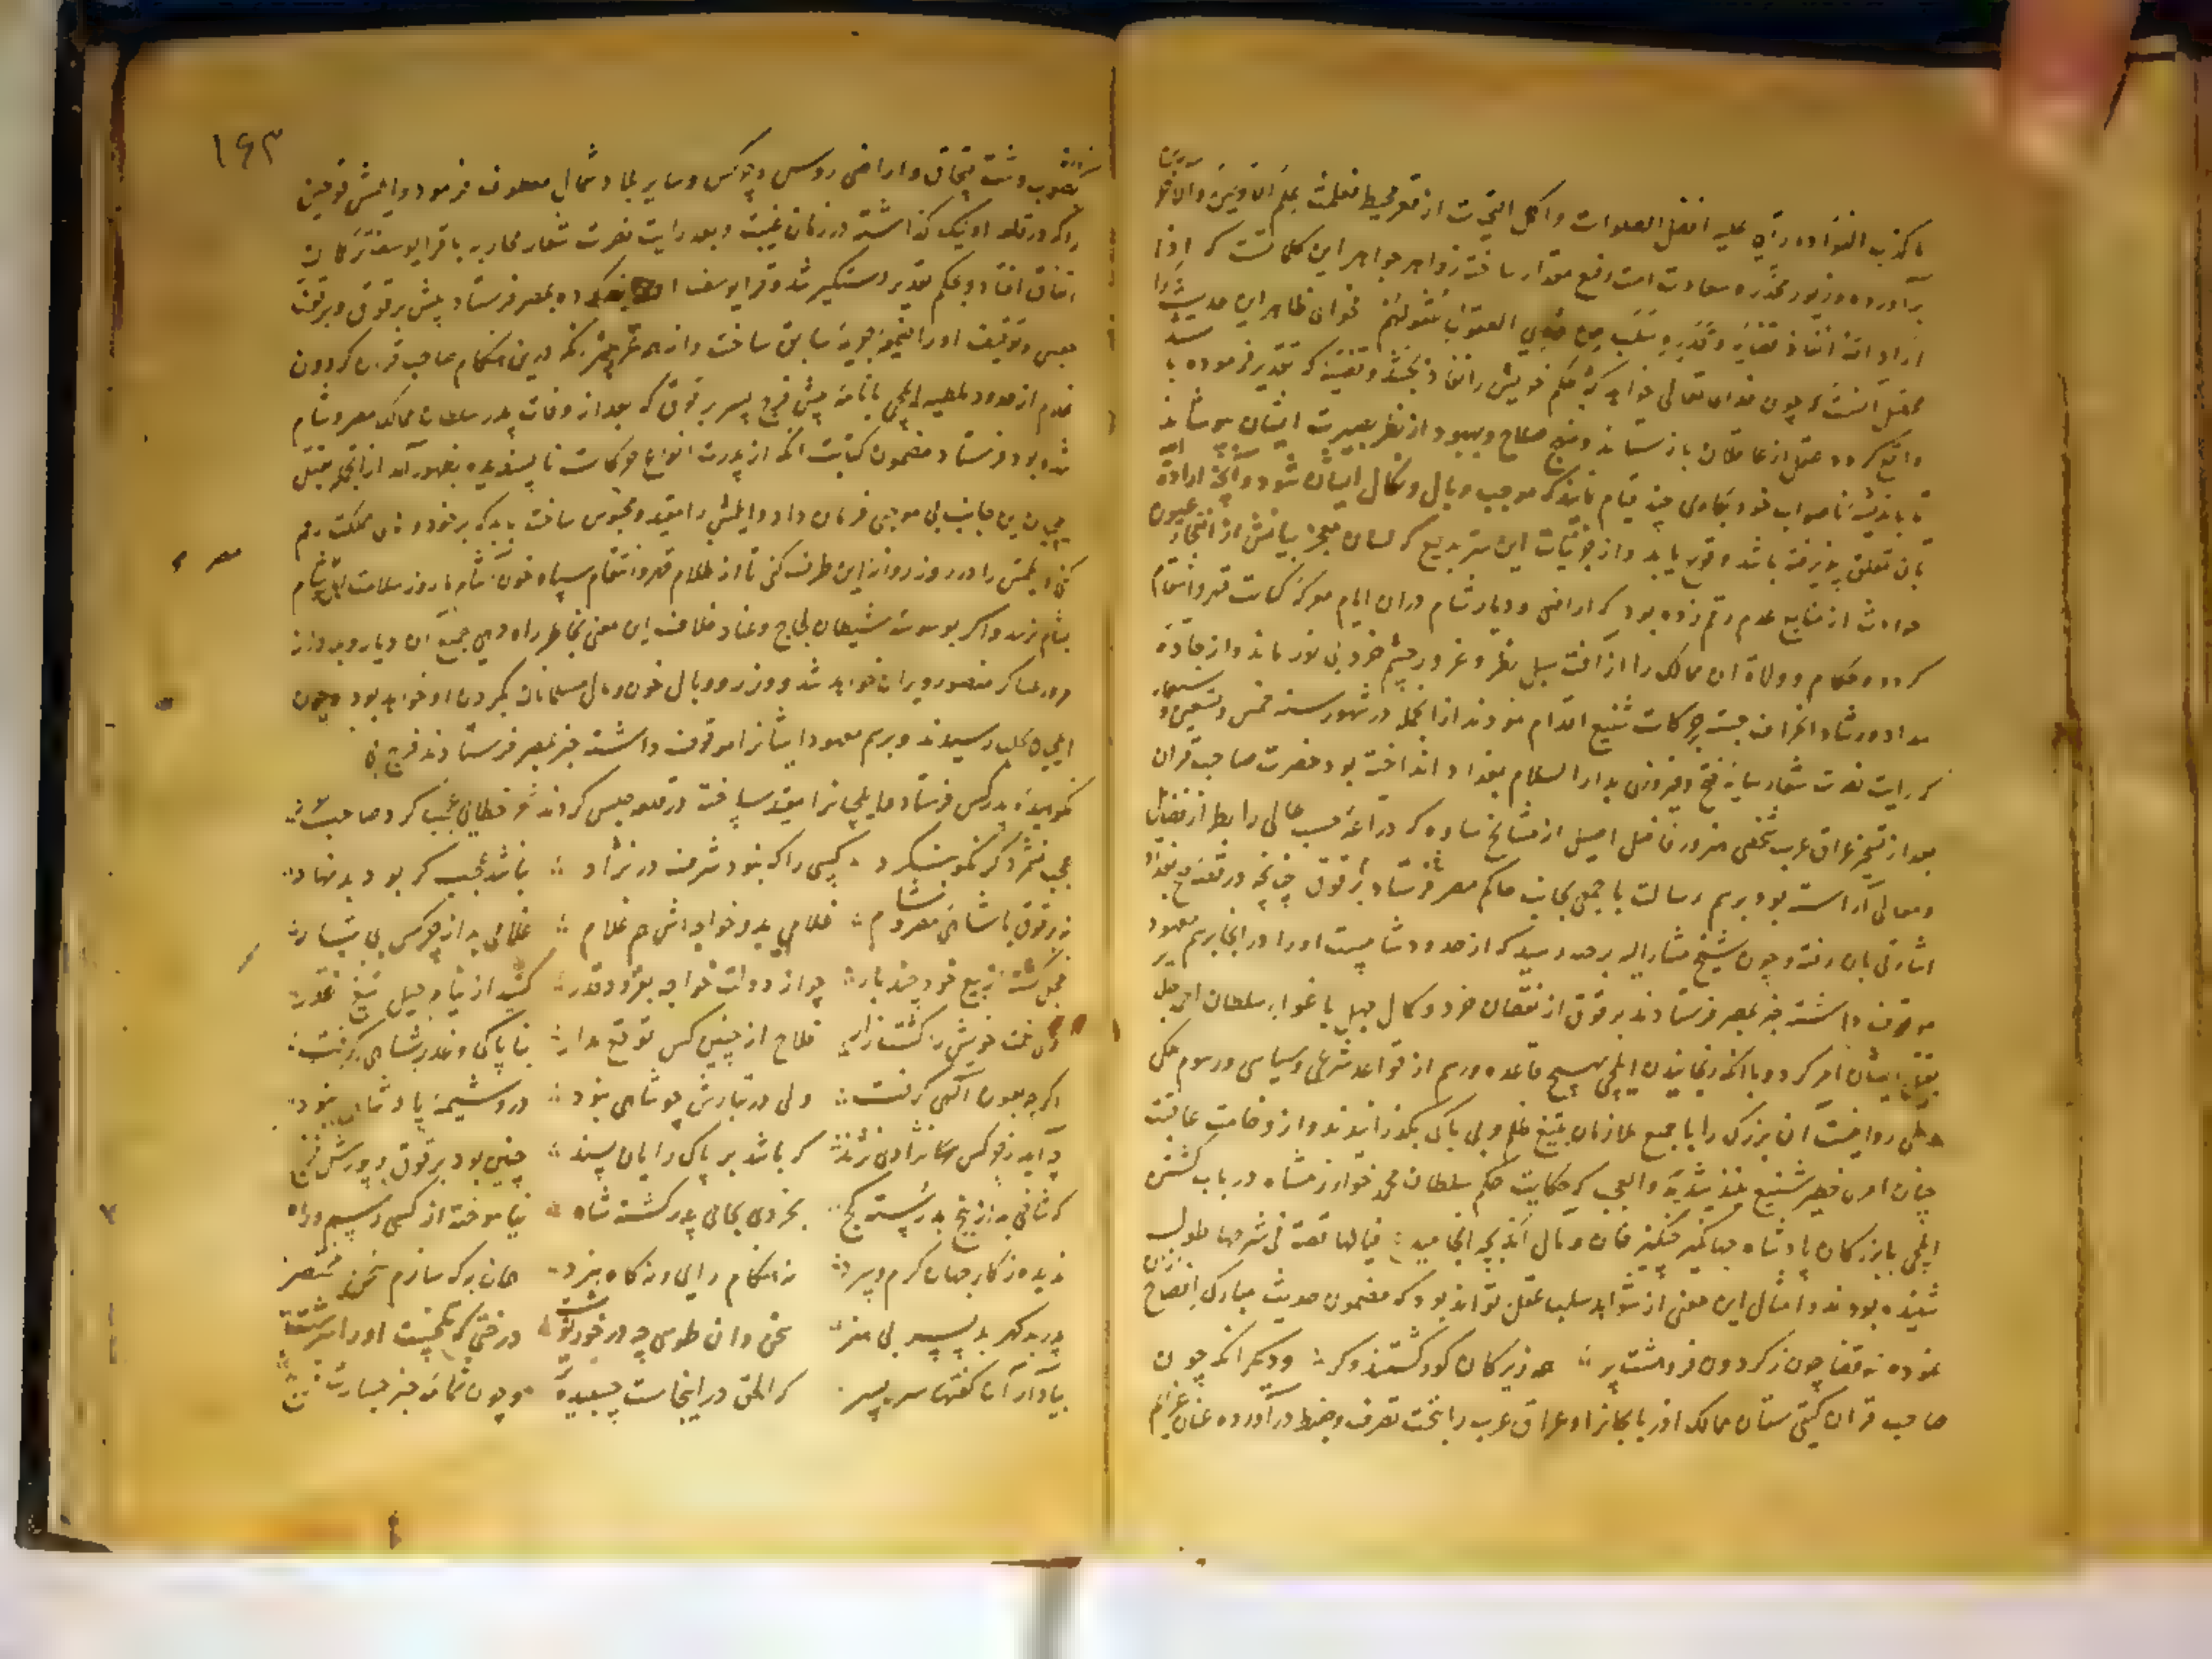 ما کذب الفؤاد ما رآی علیه افضل الصلوات واکمل التحیات از قعر محیط فعلمت علم الاولین والاخرین
برآورده وزیور مخدره سعادت امت رفیع مقدار ساخته زواهر جواهر این کلماتست که اذا
اراد الله انفاذ قضایه وقدره سلب من ذوی العقول عقولهم فحوای ظاهر این حدیث
آنست که چون خدای تعالی خواهد که حکم خویش را نفاذ بخشد وقضیه که تقدیر فرموده با
واقع کردد عقل از عاقلان باز ستاند ونهج صلاح وبهبود از نظر بصیرت ایشان بپوشاند
تا باندیشه ناصواب خود بکاری چند قیام نمایند که موجب وبال ونکال ایشان شود وآنچه اراده
بان تعلق پذیرفته باشد وقوع یابد واز جزئیات این سر بدیع که لسان معجز بیانش از
حوادث از منابع عدم رقم زده بود که اراضی ودیار شام دران ایام مرکز کتایب قهر وانتقام
کردد حکام وولاة ان ممالک را از آفت سبل بطر وغرور چشم خرد بی نور ماند واز جاده
سداد ورشاد انحراف جسته بحرکات شنیع اقدام نمودند ازانجمله در شهور سنه خمس وتسعین وسبعمایه
که رایت نصرت شعار سایه فتح وفیروزی بدار السلام بغداد انداخته بود حضرت صاحب قران
بعد از تسخیر عراق عرب شخصی هنرور فاضل اصیل از مشایخ ساوه که
ومعالی آراسته بود برسم رسالت با جمعی بجانب حاکم مصر فرستاد برقوق چنانچه در قصه فتح بغداد
اشارتی بان رفته وچون شیخ مشار الیه برحبه رسید که از حدود شامست اورا در انجا برسم معهود
موقوف داشته خبر بمصر فرستادند برقوق از نقصان خرد وکمال جهل باغوای سلطان احمد جلایر
بقتل ایشان امر کرد وباآنکه رنجانیدن ایلچی بهیچ قاعده ورسم از قواعد شرعی وسیاسی ورسوم ملکی
وملی روا نیست آن بزرک را با جمیع ملازمان بتیغ ظلم وبی باکی بکذرانیدند واز وخامت عاقبت
چنان امری خطیر شنیع نیندیشید والعجب که حکایت حکم سلطان محمد خوارزمشاه در باب کشتن
ایلچی بازرکان پادشاه جهانکیر چنکیز خان ومآل آن بچه انجامید فیالها قصة فی شرحها طول
شنیده بودند وامثال این معنی از شواهد سلب عقل تواند بود که مضمون حدیث مبارک افصاح
نموده نه قضا چون ز کردون فروهشت پر همه زیرکان کور کشتند وکر ودیکر انکه چون
صاحب قران کیتی ستان ممالک اذربایجان وعراق عرب را بتحت تصرف وضبط درآورده عنان عزایم
۱۶۳
بصوب دشت قپچاق واراضی روس وچرکس وسایر بلاد شمال معطوف فرمود وایلمش قوجین
را که در قلعه اونیک کذاشته در زمان غیبت وبعد رایت نصرت شعار محاربه با قرا یوسف ترکمان
اتفاق افتاد وبحکم تقدیر دستکیر شد وقرا یوسف بمصر فرستاد پیش برقوق وبرقوق
حبس وتوقیف اورا ضمیمه جریمه سابق ساخت درین هنکام صاحب قران کردون
غلام از حدود ملطیه ایلچی با نامه پیش فرج پسر برقوق که بعد از وفات پدر سلطان ممالک مصر وشام
شده بود فرستاد مضمون کتابت انکه از پدرت انواع حرکات ناپسندیده بظهور آمد ازانجمله قتل
ایلچیان این جانب بی موجبی فرمان داد وایلمش را مقید ومحبوس ساخت باید که بر خود واهل مملکت رحم
کنی وایلمش را در روز روانه این طرف کنی تا از ظلام قهر وانتقام سپاه خون آشام
بشام نزند واکر بوسوسه شیطان لجاج وعناد خلاف این معنی بخاطر راه دهی جمیع آن دیار
مرور عساکر منصور ویران خواهد شد ووزر ووبال خون ومال مسلمانان بکردن او خواهد بود وچون
ایلچیان بحلب رسیدند وبرسم معهود ایشانرا موقوف داشته خبر بمصر فرستادند فرج
نکوهیده پدر کس فرستاد وایلچیانرا مقید ساخت در قلعه حبس کردند
عجب نشمرد کر نکو بنکرد کسی را که نبود شرف در نژاد نباشد عجب کر بود بد نهاد
نه برقوق با شاهی مصر وشام غلامی بد وخواجه اش هم غلام غلامی بد از چرکس بی تبار
خجل کشته از بیع خود چند بار چو از دولت خواجه بفزود قدر کشید از نیام حیل تیغ غدر
ولی نعمت خویش را کشت زار فلاح از چنین کس توقع مدار بناپاکی وغدر شاهی کرفت
اکرچه بعون آلهی کرفت ولی در تبارش چو شاهی نبود درو شیمه پادشاهی نبود
چه آید ز چرکس نژادی نژند که باشد بر پاک رایان پسند چنین بود برقوق وپورش فرج
که شاخی بد از بیخ بد رسته کج بخردی بجای پدر کشته شاه نیاموخته از کسی رسم وراه
ندیده ز کار جهان کرم وسرد نه هنکام رای ونه کاه نبرد همان به که سازم سخن مختصر
پدر بد کهر بد پسر بی هنر سخن دان طوسی چه در خورد درختی که تلخست اورا سرشت
بیاد آر آن کفتها سر بسر که الحق در اینجاست چسبیده تر وچون